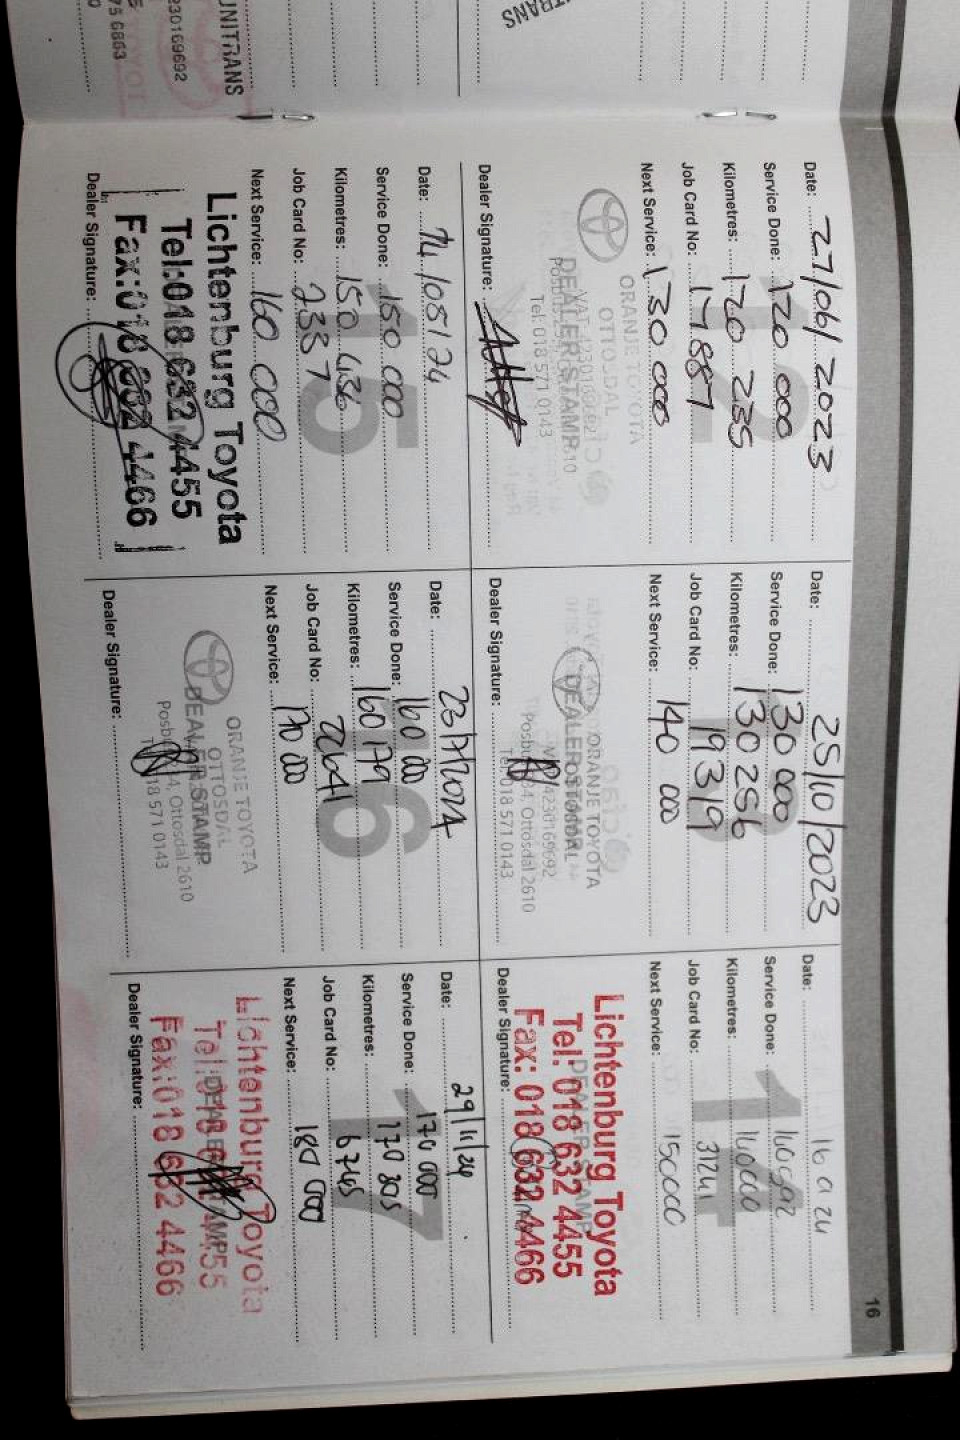 16
Date: 27/06/2023
Service Done: 120 000
Kilometres: 120 235
Job Card No: 17887
Next Service: 130 000
ORANJE TOYOTA
OTTOSDAL
DEALER STAMP
Tel: 018 571 0143
Dealer Signature:
Date: 25/10/2023
Service Done: 130 000
Kilometres: 130 256
Job Card No: 19319
Next Service: 140 000
ORANJE TOYOTA
DEALER STAMP
Posbus 34, Ottosdal 2610
Tel: 018 571 0143
Dealer Signature:
14
Date:
Service Done:
Kilometres:
Job Card No: 31241
Next Service: 15000C
Lichtenburg Toyota
Tel: 018 632 4455
Fax: 018 632 4466
DEALER STAMP
Dealer Signature:
15
Date: 14/05/24
Service Done: 150 000
Kilometres: 150 436
Job Card No: 2337
Next Service: 160 000
Lichtenburg Toyota
Tel:018 632 4455
Fax:018 632 4466
Dealer Signature:
16
Date: 23/7/2024
Service Done: 160 000
Kilometres: 160 179
Job Card No: 22641
Next Service: 170 000
ORANJE TOYOTA
OTTOSDAL
DEALER STAMP
Posbus 34, Ottosdal 2610
018 571 0143
Dealer Signature:
17
Date: 29/11/24
Service Done: 170 000
Kilometres: 170 805
Job Card No: 6745
Next Service: 180 000
Lichtenburg Toyota
Tel:018 632 4455
Fax:018 632 4466
DEALER STAMP
Dealer Signature:
UNITRANS
230169692